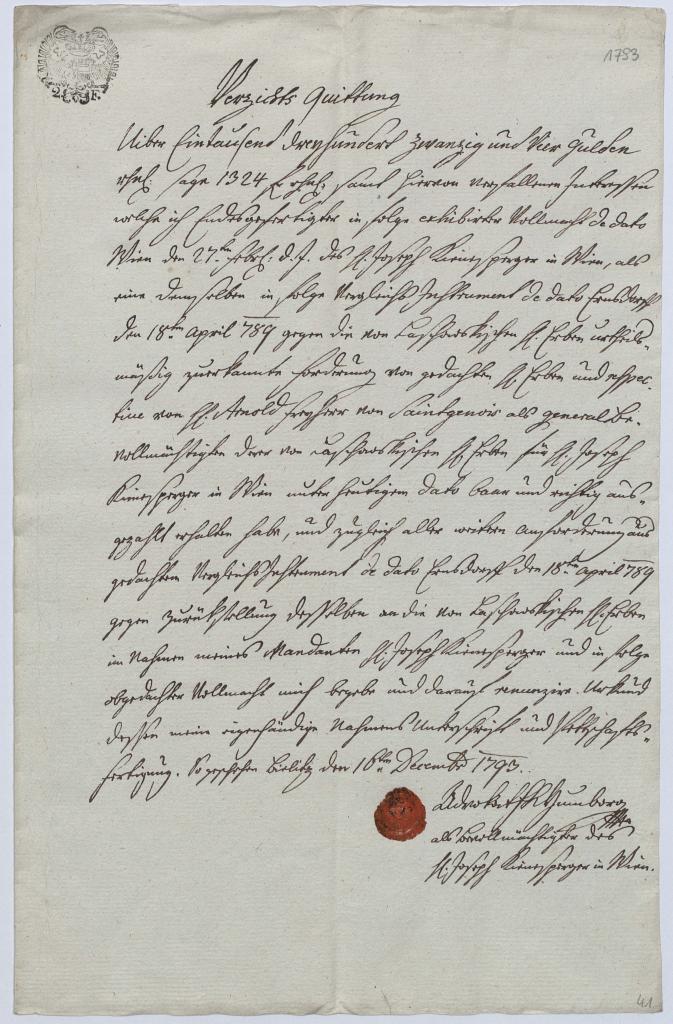 1793
2 F.
Verzichts Quittung
Uiber Eintausend dreyhundert zwanzig und Vier Gulden
rhnl: sage 1324 f rhnl: samt hiervon verfallenen Interessen
welche ich Endesgefertigter in folge exhibirter Vollmacht de dato
Wien den 27ten Febr: d. J. des H. Joseph Kienesperger in Wien, als
eine demselben in folge Vergleichs Instrument de dato Ernsdorff
den 18ten April 789 gegen die von H. Erben urtheils-
mäßig zuerkannte forderung von gedachten H. Erben und respec-
tive von H. Arnold Freyherr von Saintgenois als general Be-
vollmächtigten derer von H. Erben für H. Joseph
Kienesperger in Wien unter heutigem dato baar und richtig aus-
gezahlt erhalten habe, und zugleich aller weitern anforderung aus
gedachtem Vergleichs Instrument de dato Ernsdorff den 18ten April 789
gegen zurükstellung desselben an die von H. Erben
im Nahmen meines Mandanten H. Joseph Kienesperger und in folge
obgedachter Vollmacht mich begebe und darauf renunzire. Urkund
dessen meine eigenhändige Nahmens Unterschrift und Pettschafts-
fertigung. So geschehen Bielitz den 16ten Decembr 1793.
Advokat
als bevollmächtigter des
H. Joseph Kienesperger in Wien.
41